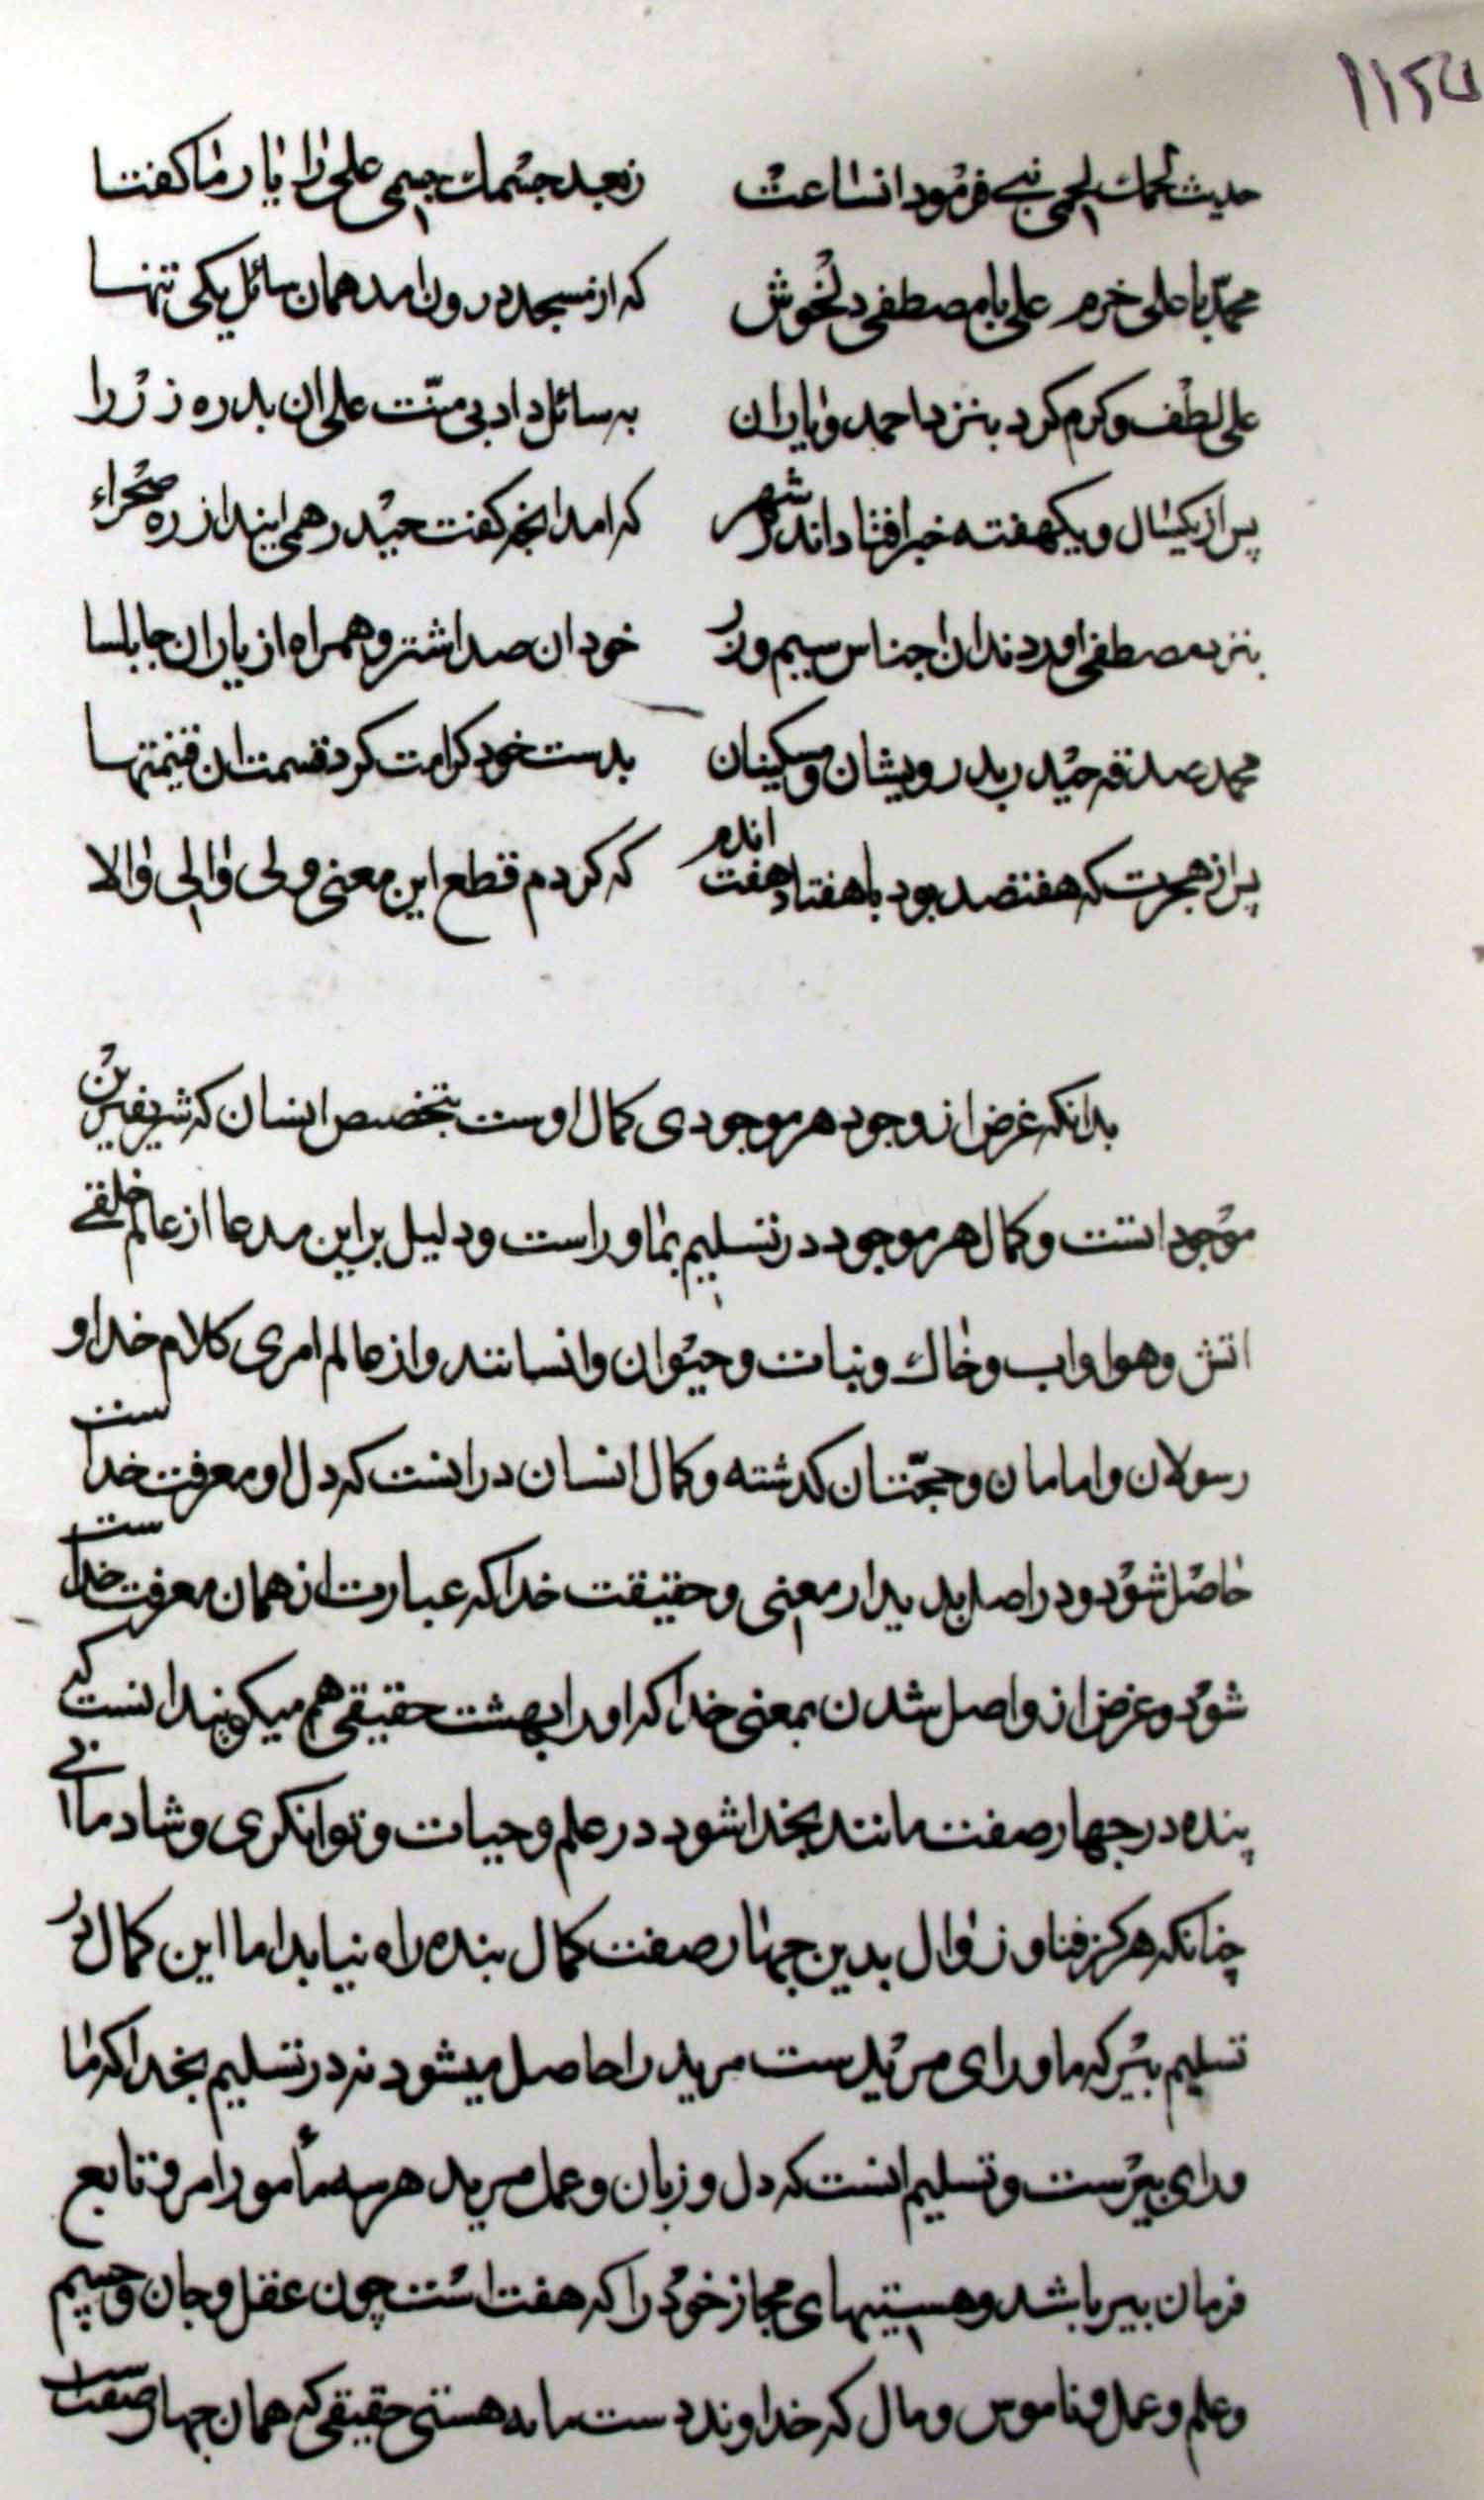 ۱۱۲۵
حدیث لحمک لحمی نبی فرمود انساعت زبعد جسمک جسمی علی را یار ما کفتا
محمد با علی خرم علی با مصطفی دلخوش که از مسجد درون امد همان سائل یکی تنها
علی لطف و کرم کرد بنزد احمد و یاران به سائل داد بی منت علی ان بدره زر را
پس از یکسال و یکهفته خبر افتاد اندر شهر که امد انجه کفت حیدر همی ایند از ره صحراء
بنزد مصطفی اوردند ان اجناس سیم و زر خود ان صد اشتر و همراه از یاران جابلسا
محمد صدقه حیدر بدرویشان و مسکینان بدست خود کرامت کرد قسمت ان قنیمتها
پس از هجرت که هفتصد بود با هفتاد هفت اندم که کردم قطع این معنی ولی والی والا
بدانکه غرض از وجود هر موجودی کمال اوست بتخصیص انسان که شریفترین
موجود انست و کمال هر موجود در تسلیم بماوراست و دلیل بر این مدعا از عالم خلقی
اتش و هوا و اب و خاک و نبات و حیوان و انسانند و از عالم امری کلام خدا و
رسولان و امامان و حجتان کدشته و کمال انسان در انست که دل او معرفت خداست
حاصل شود و در اصل بدیدار معنی و حقیقت خدا که عبارت از همان معرفت خداست
شود و غرض از واصل شدن بمعنی خدا که اورا بهشت حقیقی هم میکویند انست که
بنده در جهار صفت مانند بخدا شود در علم و حیات و توانکری و شادمانی
چنانکه هرکز فنا و زوال بدین جهار صفت کمال بنده راه نیابد اما این کمال در
تسلیم بپیر که ماورای مریدست مرید را حاصل میشود نه در تسلیم بخدا که ما
ورای پیرست و تسلیم انست که دل و زبان و عمل مرید هر سه مأمور امر و تابع
فرمان پیر باشد و هستیهای مجاز خود را که هفت است چون عقل و جان و جسم
و علم و عمل و ناموس و مال که خداوند دست مایه هستی حقیقی که همان جهار صفت است